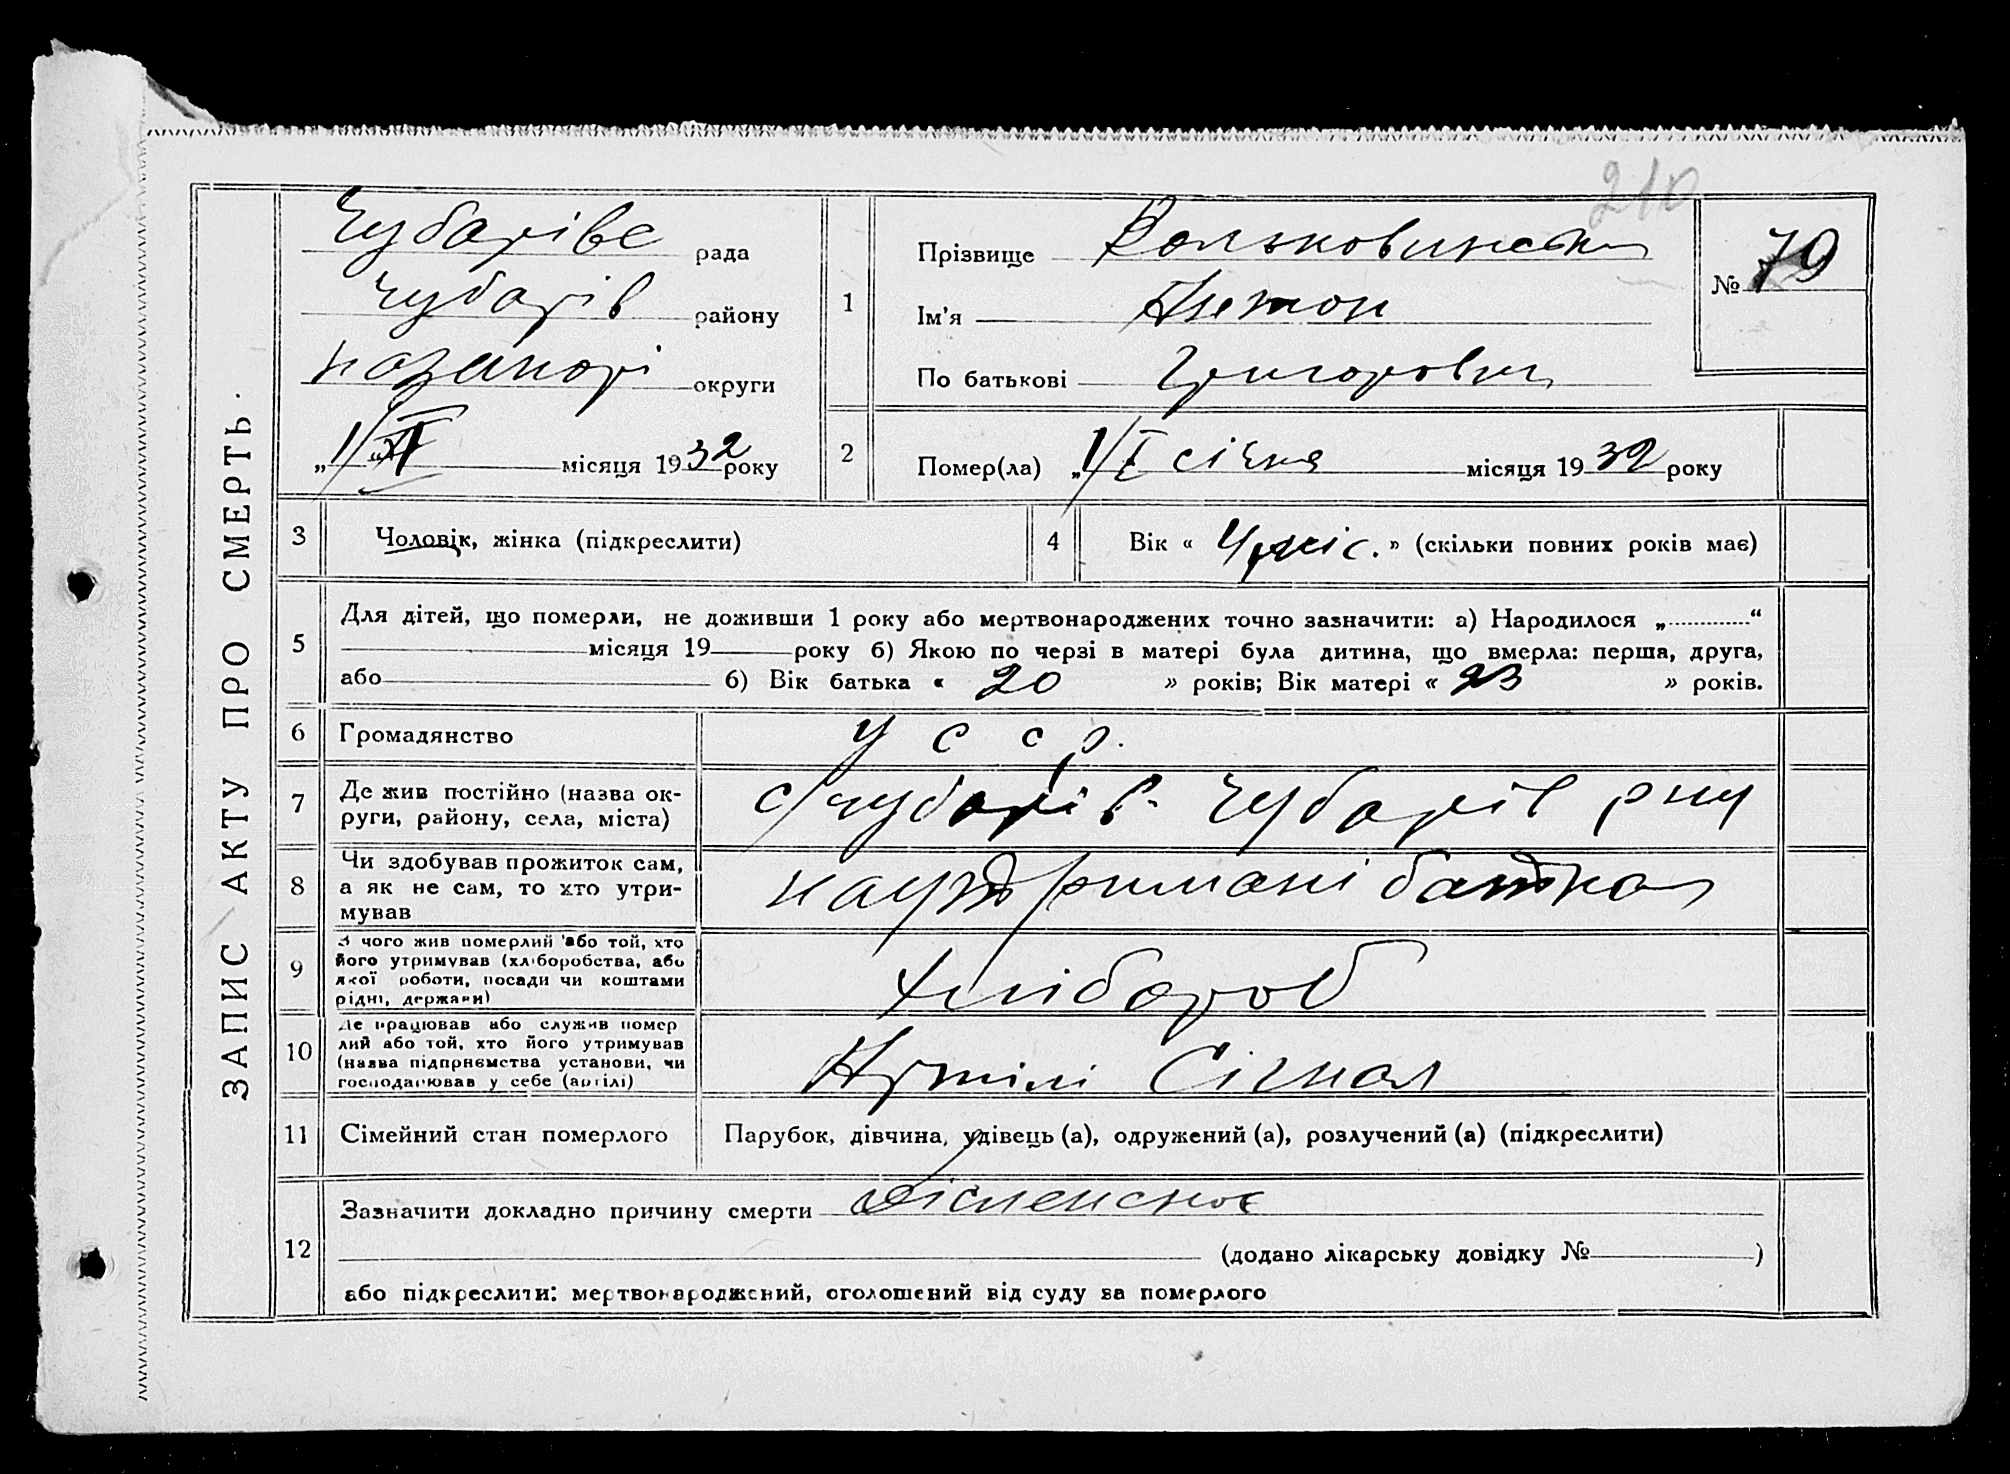 210
ЗАПИС АКТУ ПРО СМЕРТЬ.
Чубарівс рада
Чубарів району
округи
„1/XI місяця 1932 року
1
Прізвище Вальковинськ
Ім'я Антон
По батькові Григорович
№ 79
2
Помер(ла) „1/I січня місяця 1932 року
3 Чоловік, жінка (підкреслити)
4 Вік « 4 міс. » (скільки повних років має)
5
Для дітей, що померли, не доживши 1 року або мертвонароджених точно зазначити: а) Народилося „ “
місяця 19 року б) Якою по черзі в матері була дитина, що вмерла: перша, друга,
або б) Вік батька « 20 » років; Вік матері « 23 » років.
6 Громадянство У С С Р.
7 Де жив постійно (назва ок-
руги, району, села, міста) с/Чубарів Чубарів рну
8 Чи здобував прожиток сам,
а як не сам, то хто утри-
мував на утримані батька
9 З чого жив померлий або той, хто
його утримував (хліборобства, або
якої роботи, посади чи коштами
рідні, держави) Хлібороб
10 Де працював або служив помер
лий або той, хто його утримував
(назва підприємства установи, чи
господарював у себе (артілі) Артілі Сігнал
11 Сімейний стан померлого Парубок, дівчина, удівець (а), одружений (а), розлучений (а) (підкреслити)
12
Зазначити докладно причину смерти
(додано лікарську довідку № )
або підкреслити: мертвонароджений, оголошений від суду за померлого